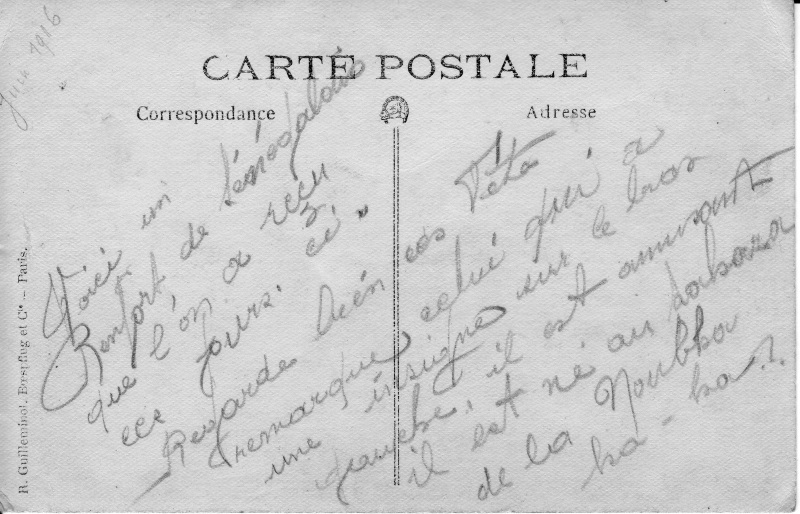 Juin 1916
CARTE POSTALE
Correspondance
Adresse
Voici un
Renfort de Sénégalais
que l'on a reçu
ces jours. ci.
Regarde bien ces Têtes
remarque celui qui a
une insigne sur le bras
gauche, il est amusant
il est né au
de la Noubka
ka-ka?
R. Guilleminot, Bœspflug et Cie — Paris.